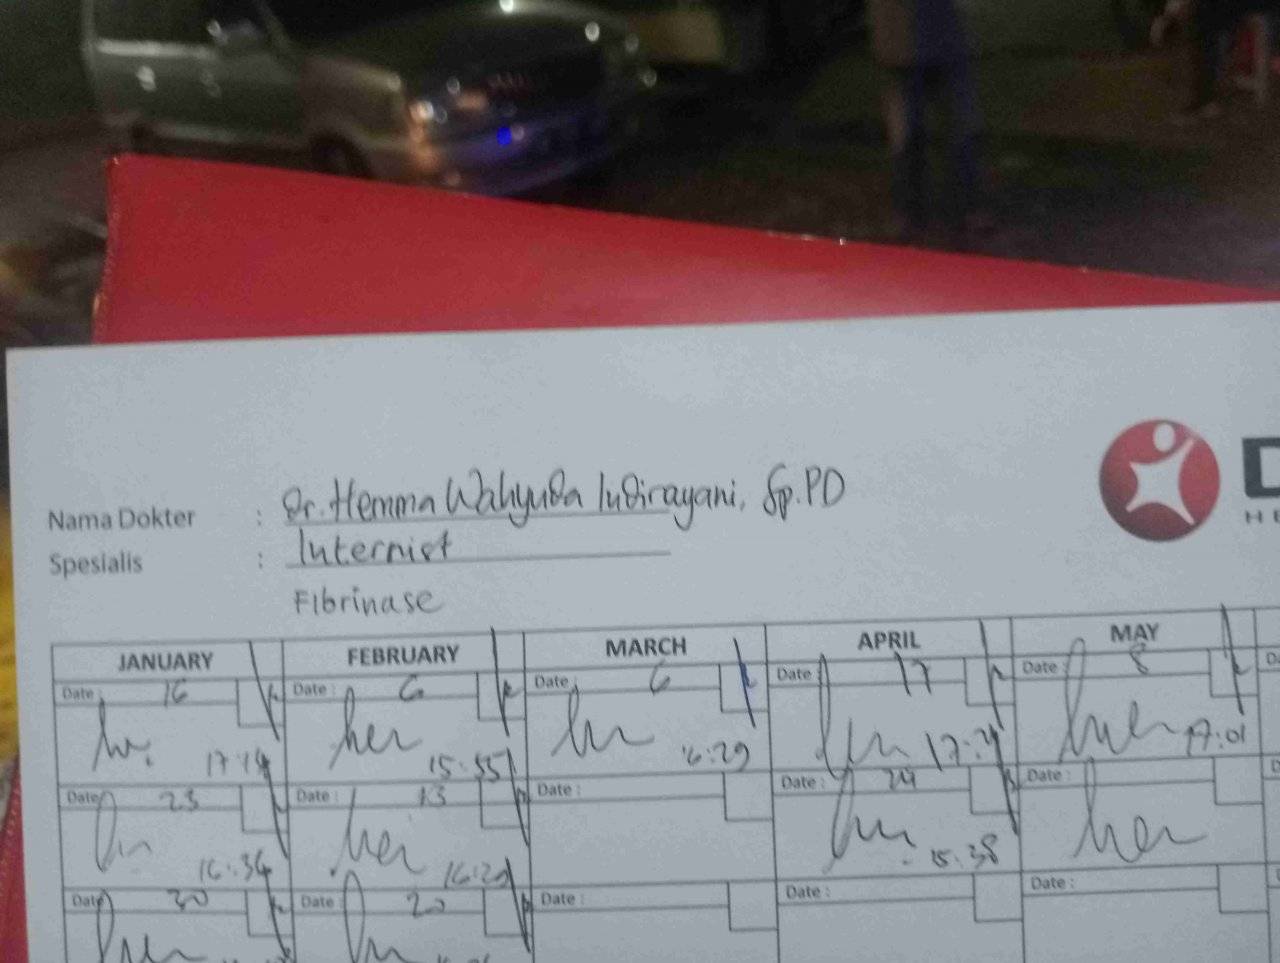 Nama Dokter : Dr. Hemma Wahyuda Indirayani, Sp.PD
Spesialis : Internist
Fibrinase
JANUARY FEBRUARY MARCH APRIL MAY
Date : 16 Date : 6 Date : 6 Date : 17 Date : 8
17:14 15:55 16:29 17:01
Date : 23 Date : 13 Date : Date : 24 Date :
16:34 16:29 15:38
Date : 30 Date : 20 Date : Date : Date :